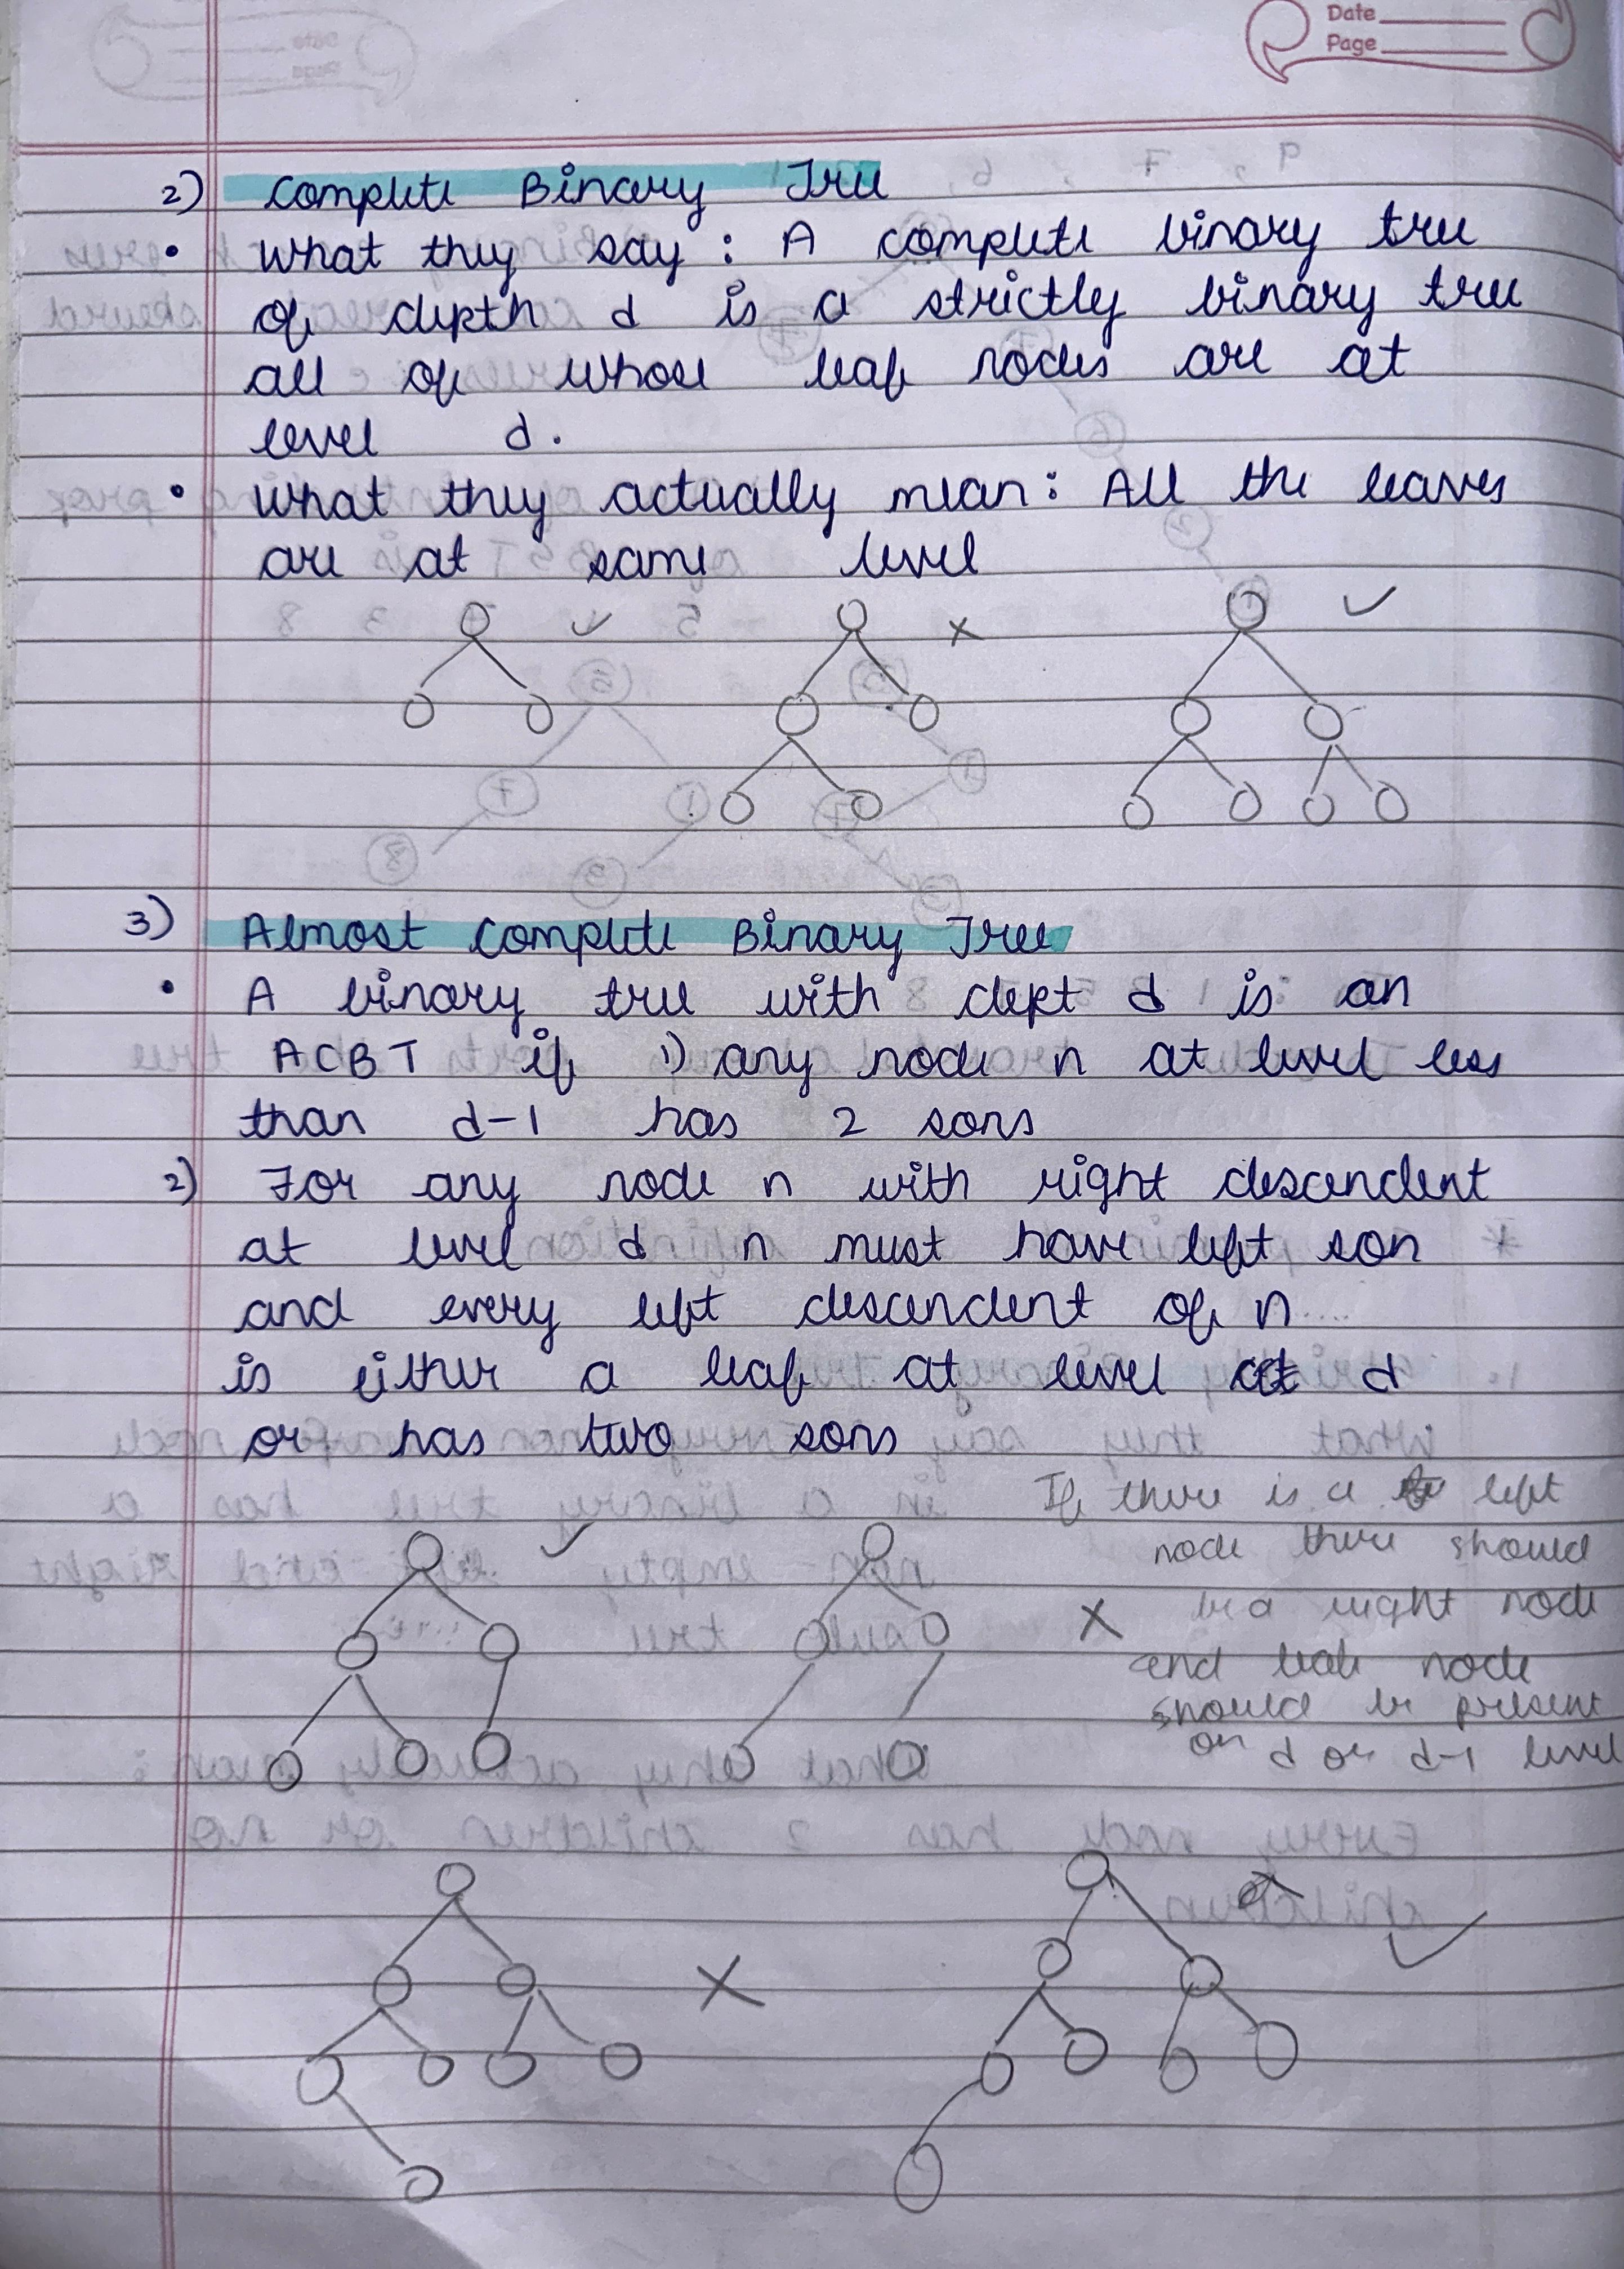 Date
Page
2) Complete Binary Tree
• What they say : A complete binary tree
of depth d is a strictly binary tree
all of whose leaf nodes are at
level d.
• What they actually mean : All the leaves
are at same level
3) Almost Complete Binary Tree
• A binary tree with dept d is an
ACBT if 1) any node n at level less
than d-1 has 2 sons
2) For any node n with right descendent
at level d n must have left son
and every left descendent of n
is either a leaf at level d
or has two sons
If there is a left
node there should
be a right node
and leaf node
should be present
on d or d-1 level